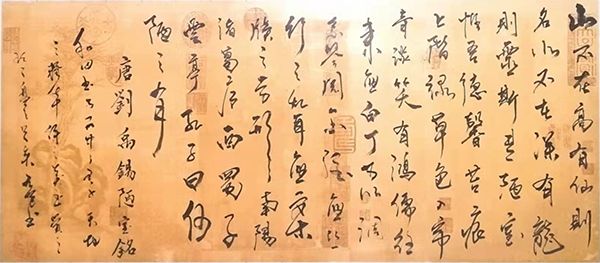 山不在高有仙則
名水不在深有龍
則靈斯是陋室
惟吾德馨苔痕
上階綠草色入簾
青談笑有鴻儒往
來無白丁可以調
素琴閱金經無絲
竹之亂耳無案
牘之勞形南陽
諸葛廬西蜀子
雲亭孔子曰何
陋之有
唐劉禹錫陋室銘